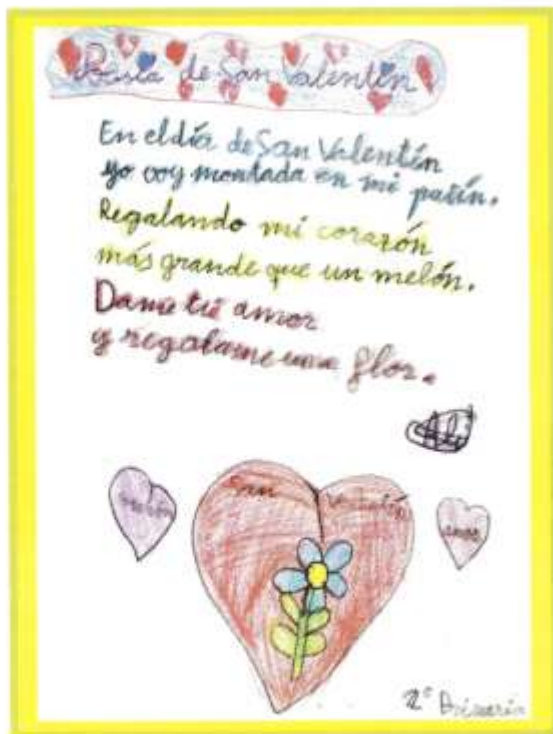 Poesía de San Valentín
En el día de San Valentín
yo voy montada en mi patín.
Regalando mi corazón
más grande que un melón.
Dame tú amor
y regalame una flor.
Ali
San Valentín
amor
2º Primaria